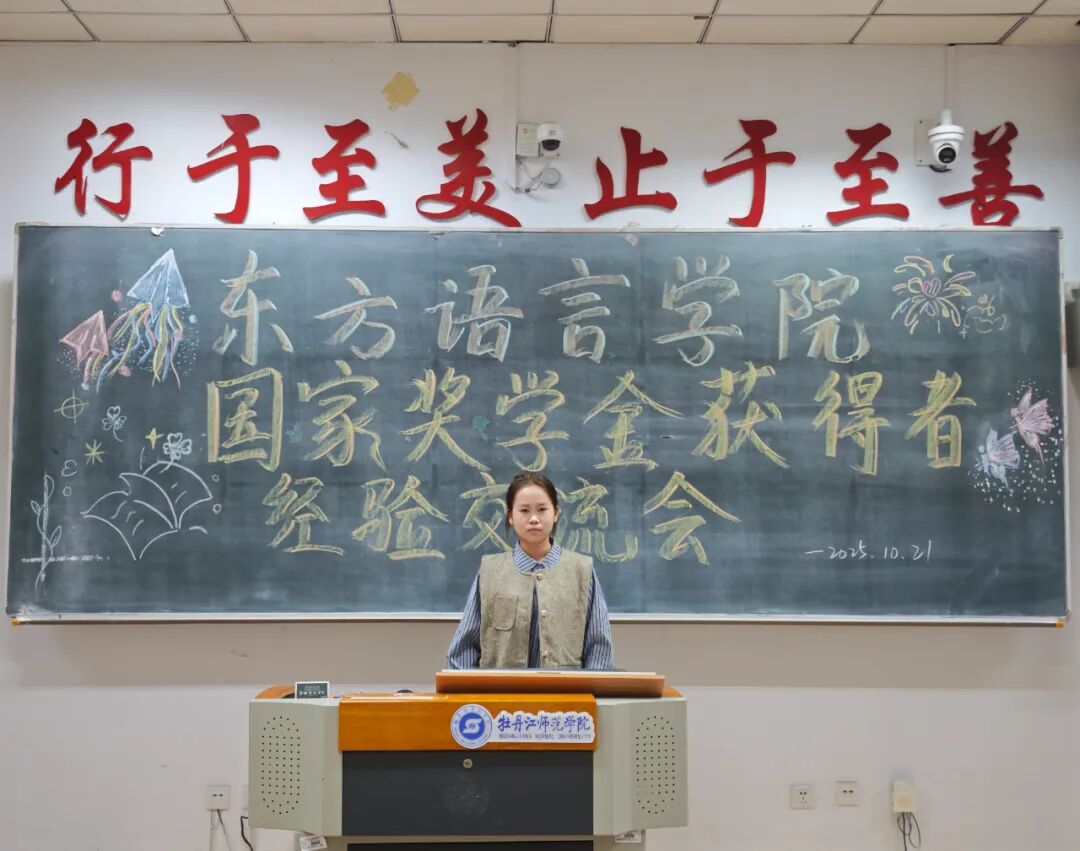 行于至美 止于至善
东方语言学院
国家奖学金获得者
经验交流会
-2025.10.21
牡丹江师范学院
MUDANJIANG NORMAL UNIVERSITY